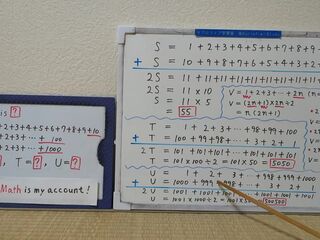 is ?
+2+3+4+5+6+7+8+9+10
+2+3+ ⋯ + 100
+2+3+ ⋯ + 1000
?, T = ?, U = ?
Math is my account !
S = 1+2+3+4+5+6+7+8+9+
+ S = 10+9+8+7+6+5+4+3+2+
2S = 11+11+11+11+11+11+11
2S = 11×10
S = 11×5
= 55
V = 1+2+3+ ⋯ + 2n
V = (2n+1)×2n÷2
= n(2n+1)
T = 1+ 2+ 3+ ⋯ +98+99+100
+ T = 100+99+98+ ⋯ + 3+ 2+ 1
2T = 101+101+101+ ⋯ +101+101+101
T = 101×100÷2 = 101×50 = 5050
U = 1+ 2+ 3+ ⋯ +998+999+1000
+ U = 1000+999+998+ ⋯ + 3+ 2+ 1
2U =
U = 500500